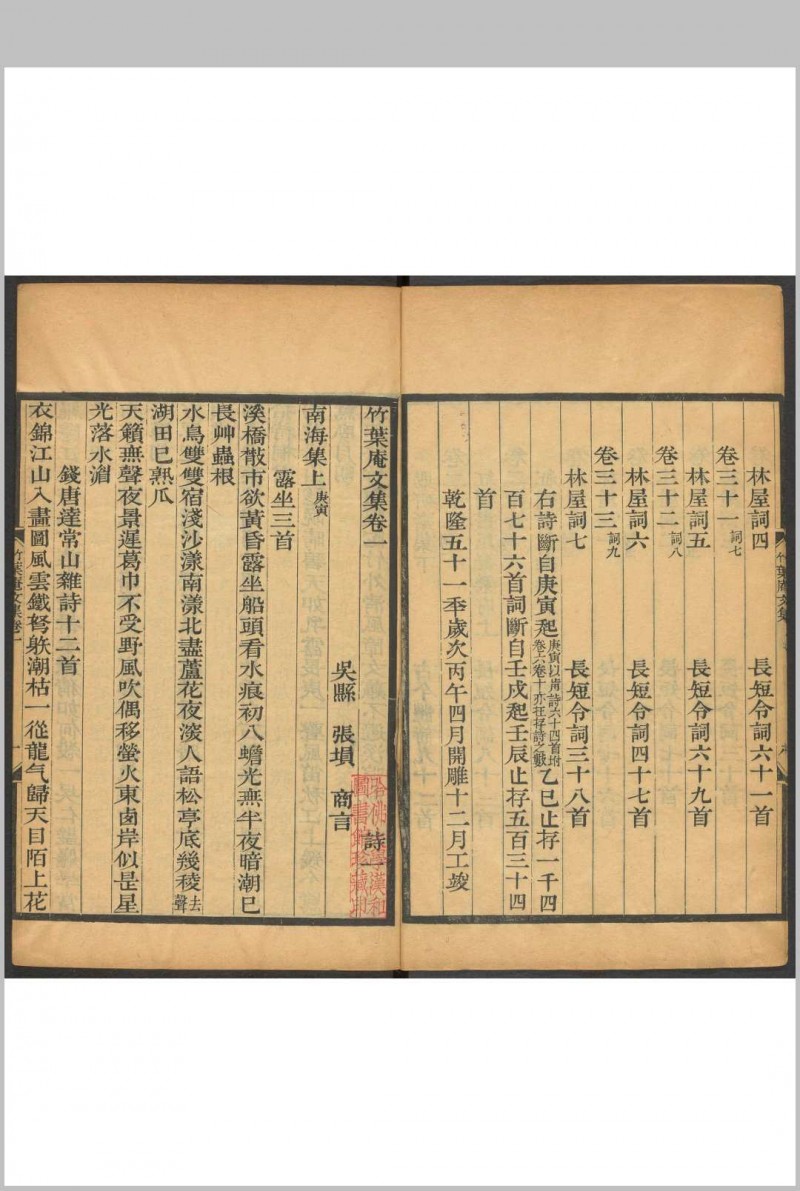 林屋詞四　長短令詞六十一首
卷三十一詞七
林屋詞五　長短令詞六十九首
卷三十二詞八
林屋詞六　長短令詞四十七首
卷三十三詞九
林屋詞七　長短令詞三十八首
右詩斷自庚寅起庚寅以前詩六十四首坿卷六卷十亦在存詩之數乙巳止存一千四
百七十六首詞斷自壬戌起壬辰止存五百三十四
首
乾隆五十一季歲次丙午四月開雕十二月工竣
竹葉庵文集
竹葉庵文集卷一　詩一
吳縣　張塤　商言
南海集上庚寅
露坐三首
溪橋散市欲黃昏露坐船頭看水痕初八蟾光無半夜暗潮巳
長艸蟲根
水鳥雙雙宿淺沙漾南漾北盡蘆花夜深人語松亭底幾稜去聲
湖田巳熟瓜
天籟無聲夜景遲葛巾不受野風吹偶移螢火東鹵岸似是星
光落水湄
錢唐達常山雜詩十二首
衣錦江山入畫圖風雲鐵弩躲潮枯一從龍气歸天目陌上花
竹葉庵文集卷一
一
哈佛大學漢和圖書館珍藏印